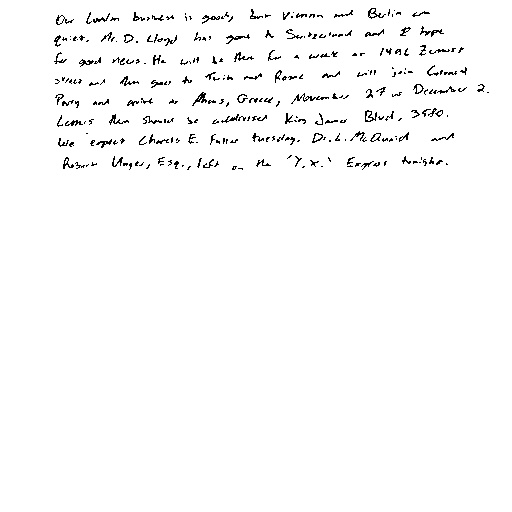 Our London business is good, but Vienna and Berlin are
quiet. Mr. D. Lloyd has gone to Switzerland and I hope
for good news. He will be there for a week at 1496 Zermott
street and then goes to Turin and Rome and will join Colonel
Parry and arrive at Athens, Greece, November 27 or December 2.
Letters there should be addressed King James Blvd, 3580.
We expect Charles E. Fuller tuesday. Dr. L. McQuaid and
Robert Unger, Esq., left on the 'Y.X.' Express tonight.